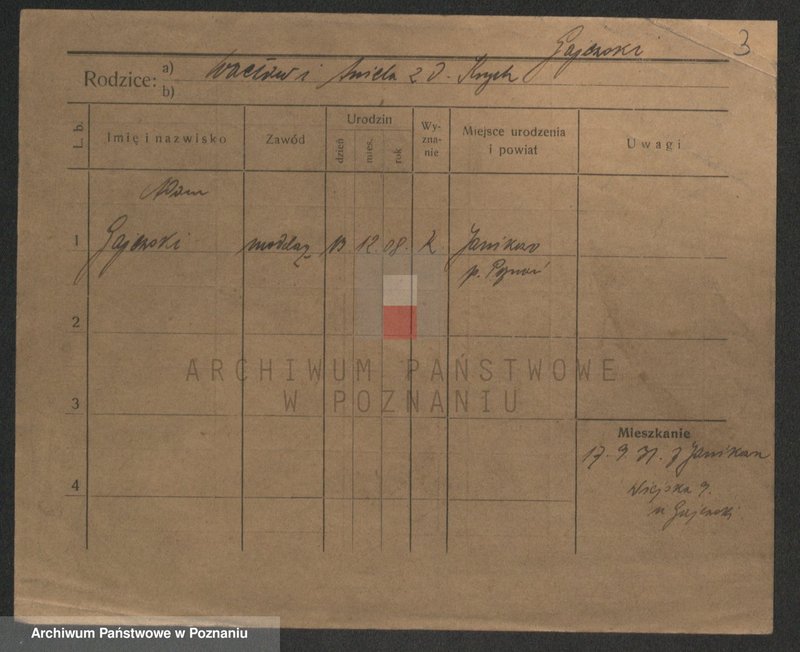 Gajewski 3
Rodzice: a) Wacław i Aniela z d. Krych
b)
L. b. Imię i nazwisko Zawód Urodzin dzień mies. rok Wyznanie Miejsce urodzenia i powiat Uwagi
Adam
1 Gajewski 13 12 08. k. Janikowo
p. Poznań
2
ARCHIWUM PAŃSTWOWE
W POZNANIU
3
Mieszkanie
17. 9. 31. z Janikowa
4 Wiejska 9.
u Gajewski
Archiwum Państwowe w Poznaniu